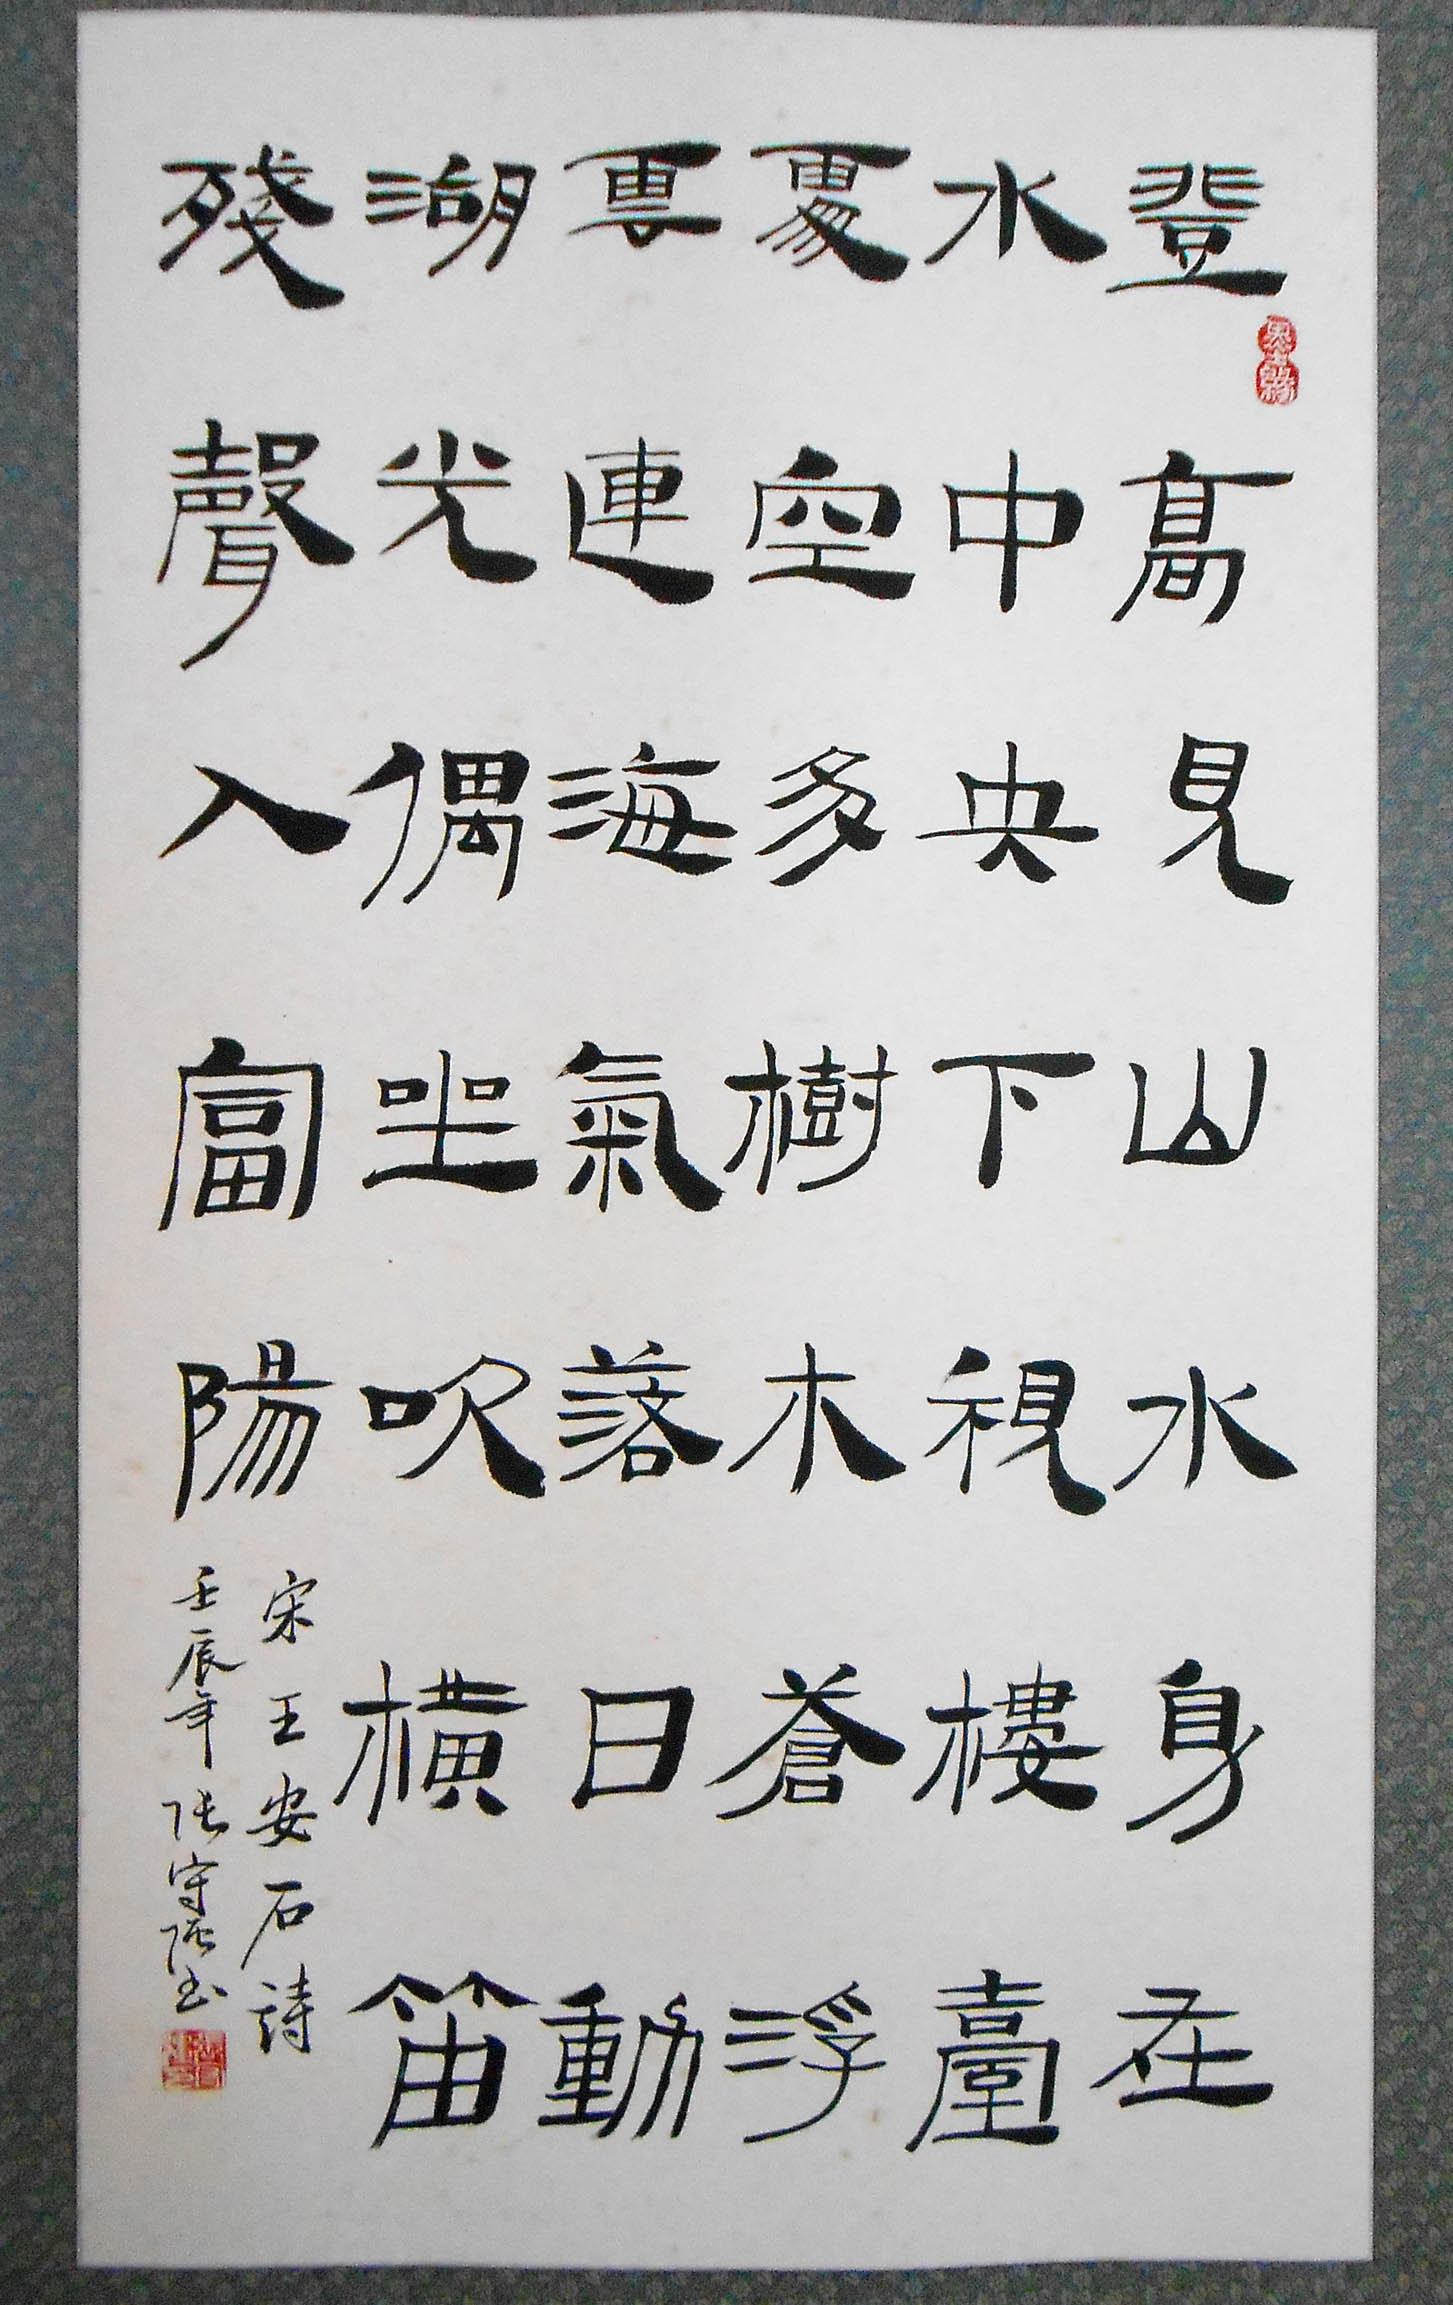 登高見山水身在
水中央下視樓臺
處空多樹木蒼浮
雲連海氣落日動
湖光偶坐吹橫笛
殘聲入富陽
宋王安石詩
壬辰年張守隱書